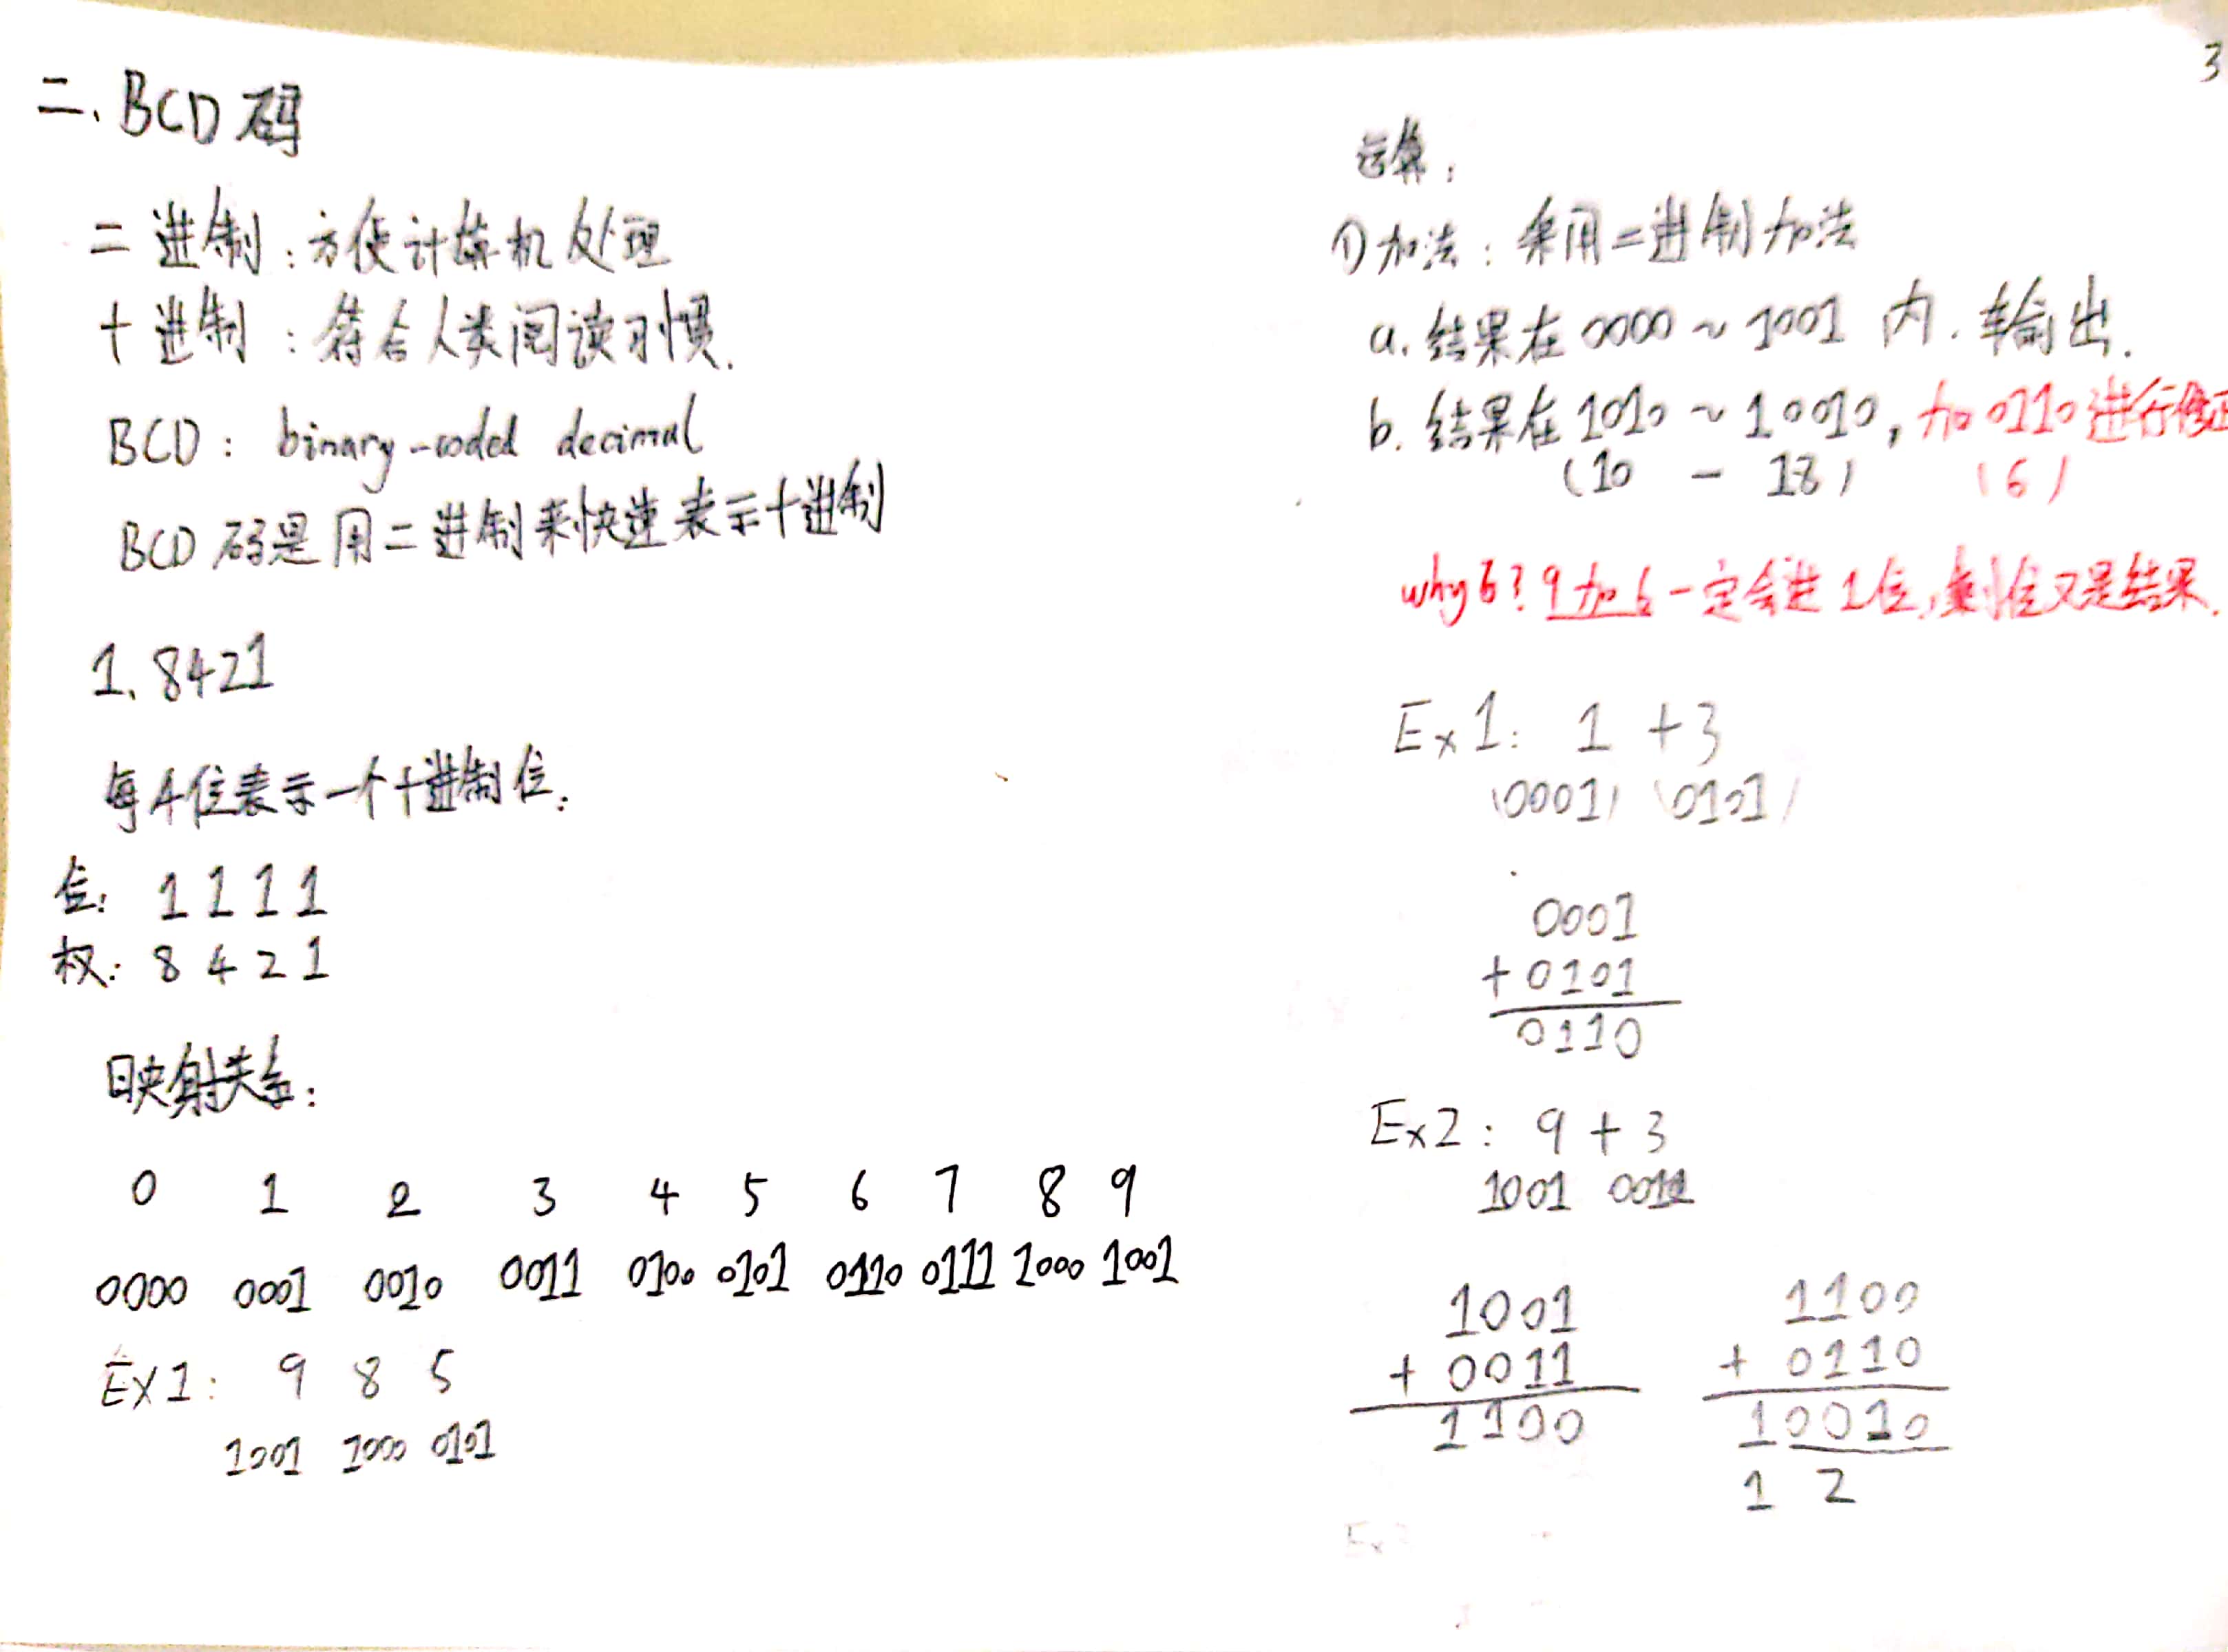 3
二、BCD码
二进制：方便计算机处理
十进制：符合人类阅读习惯.
BCD：binary-coded decimal
BCD码是用二进制来快速表示十进制
1、8421
每4位表示一个十进制位：
位：1 1 1 1
权：8 4 2 1
映射关系：
0 1 2 3 4 5 6 7 8 9
0000 0001 0010 0011 0100 0101 0110 0111 1000 1001
EX1： 9 8 5
1001 1000 0101
运算：
①加法：采用二进制加法
a. 结果在0000~1001内.输出.
b. 结果在1010~10010，加0110进行修正
(10 - 18) (6)
why 6？9加6一定会进1位，剩位又是结果.
Ex1： 1 + 3
(0001) (0101)
0001
+ 0101
0110
Ex2： 9 + 3
1001 0011
1001
+ 0011
1100
1100
+ 0110
10010
1 2